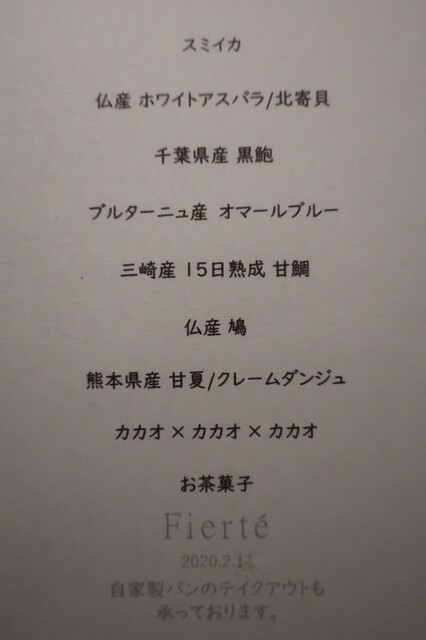 スミイカ
仏産 ホワイトアスパラ/北寄貝
千葉県産 黒鮑
ブルターニュ産 オマールブルー
三崎産 15日熟成 甘鯛
仏産 鳩
熊本県産 甘夏/クレームダンジュ
カカオ × カカオ × カカオ
お茶菓子
Fierté
自家製パンのテイクアウトも
承っております。